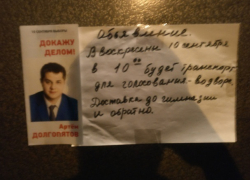 ДОКАЖУ
ДЕЛОМ!
Артём
ДОЛГОПЯТОВ
Объявление.
В воскресение 10 сентября
в 10 00 будет транспорт
для голосования
Доставка до гимназии
и обратно.